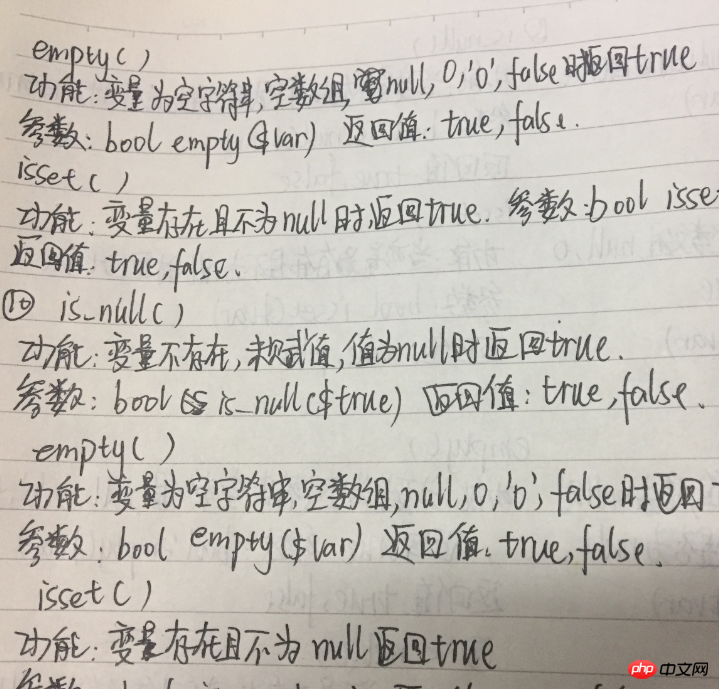 empty()
功能:变量为空字符串,空数组,null,0,'0',false时返回true
参数: bool empty($var) 返回值: true,false.
isset()
功能: 变量存在且不为null时返回true. 参数:bool isse
返回值: true,false.
⑩ is_null()
功能:变量不存在,未赋值,值为null时返回true.
参数: bool is_null($true) 返回值: true,false.
empty()
功能:变量为空字符串,空数组,null,0,'0',false时返回
参数: bool empty($var) 返回值: true,false.
isset()
功能:变量存在且不为null返回true
php 中文网